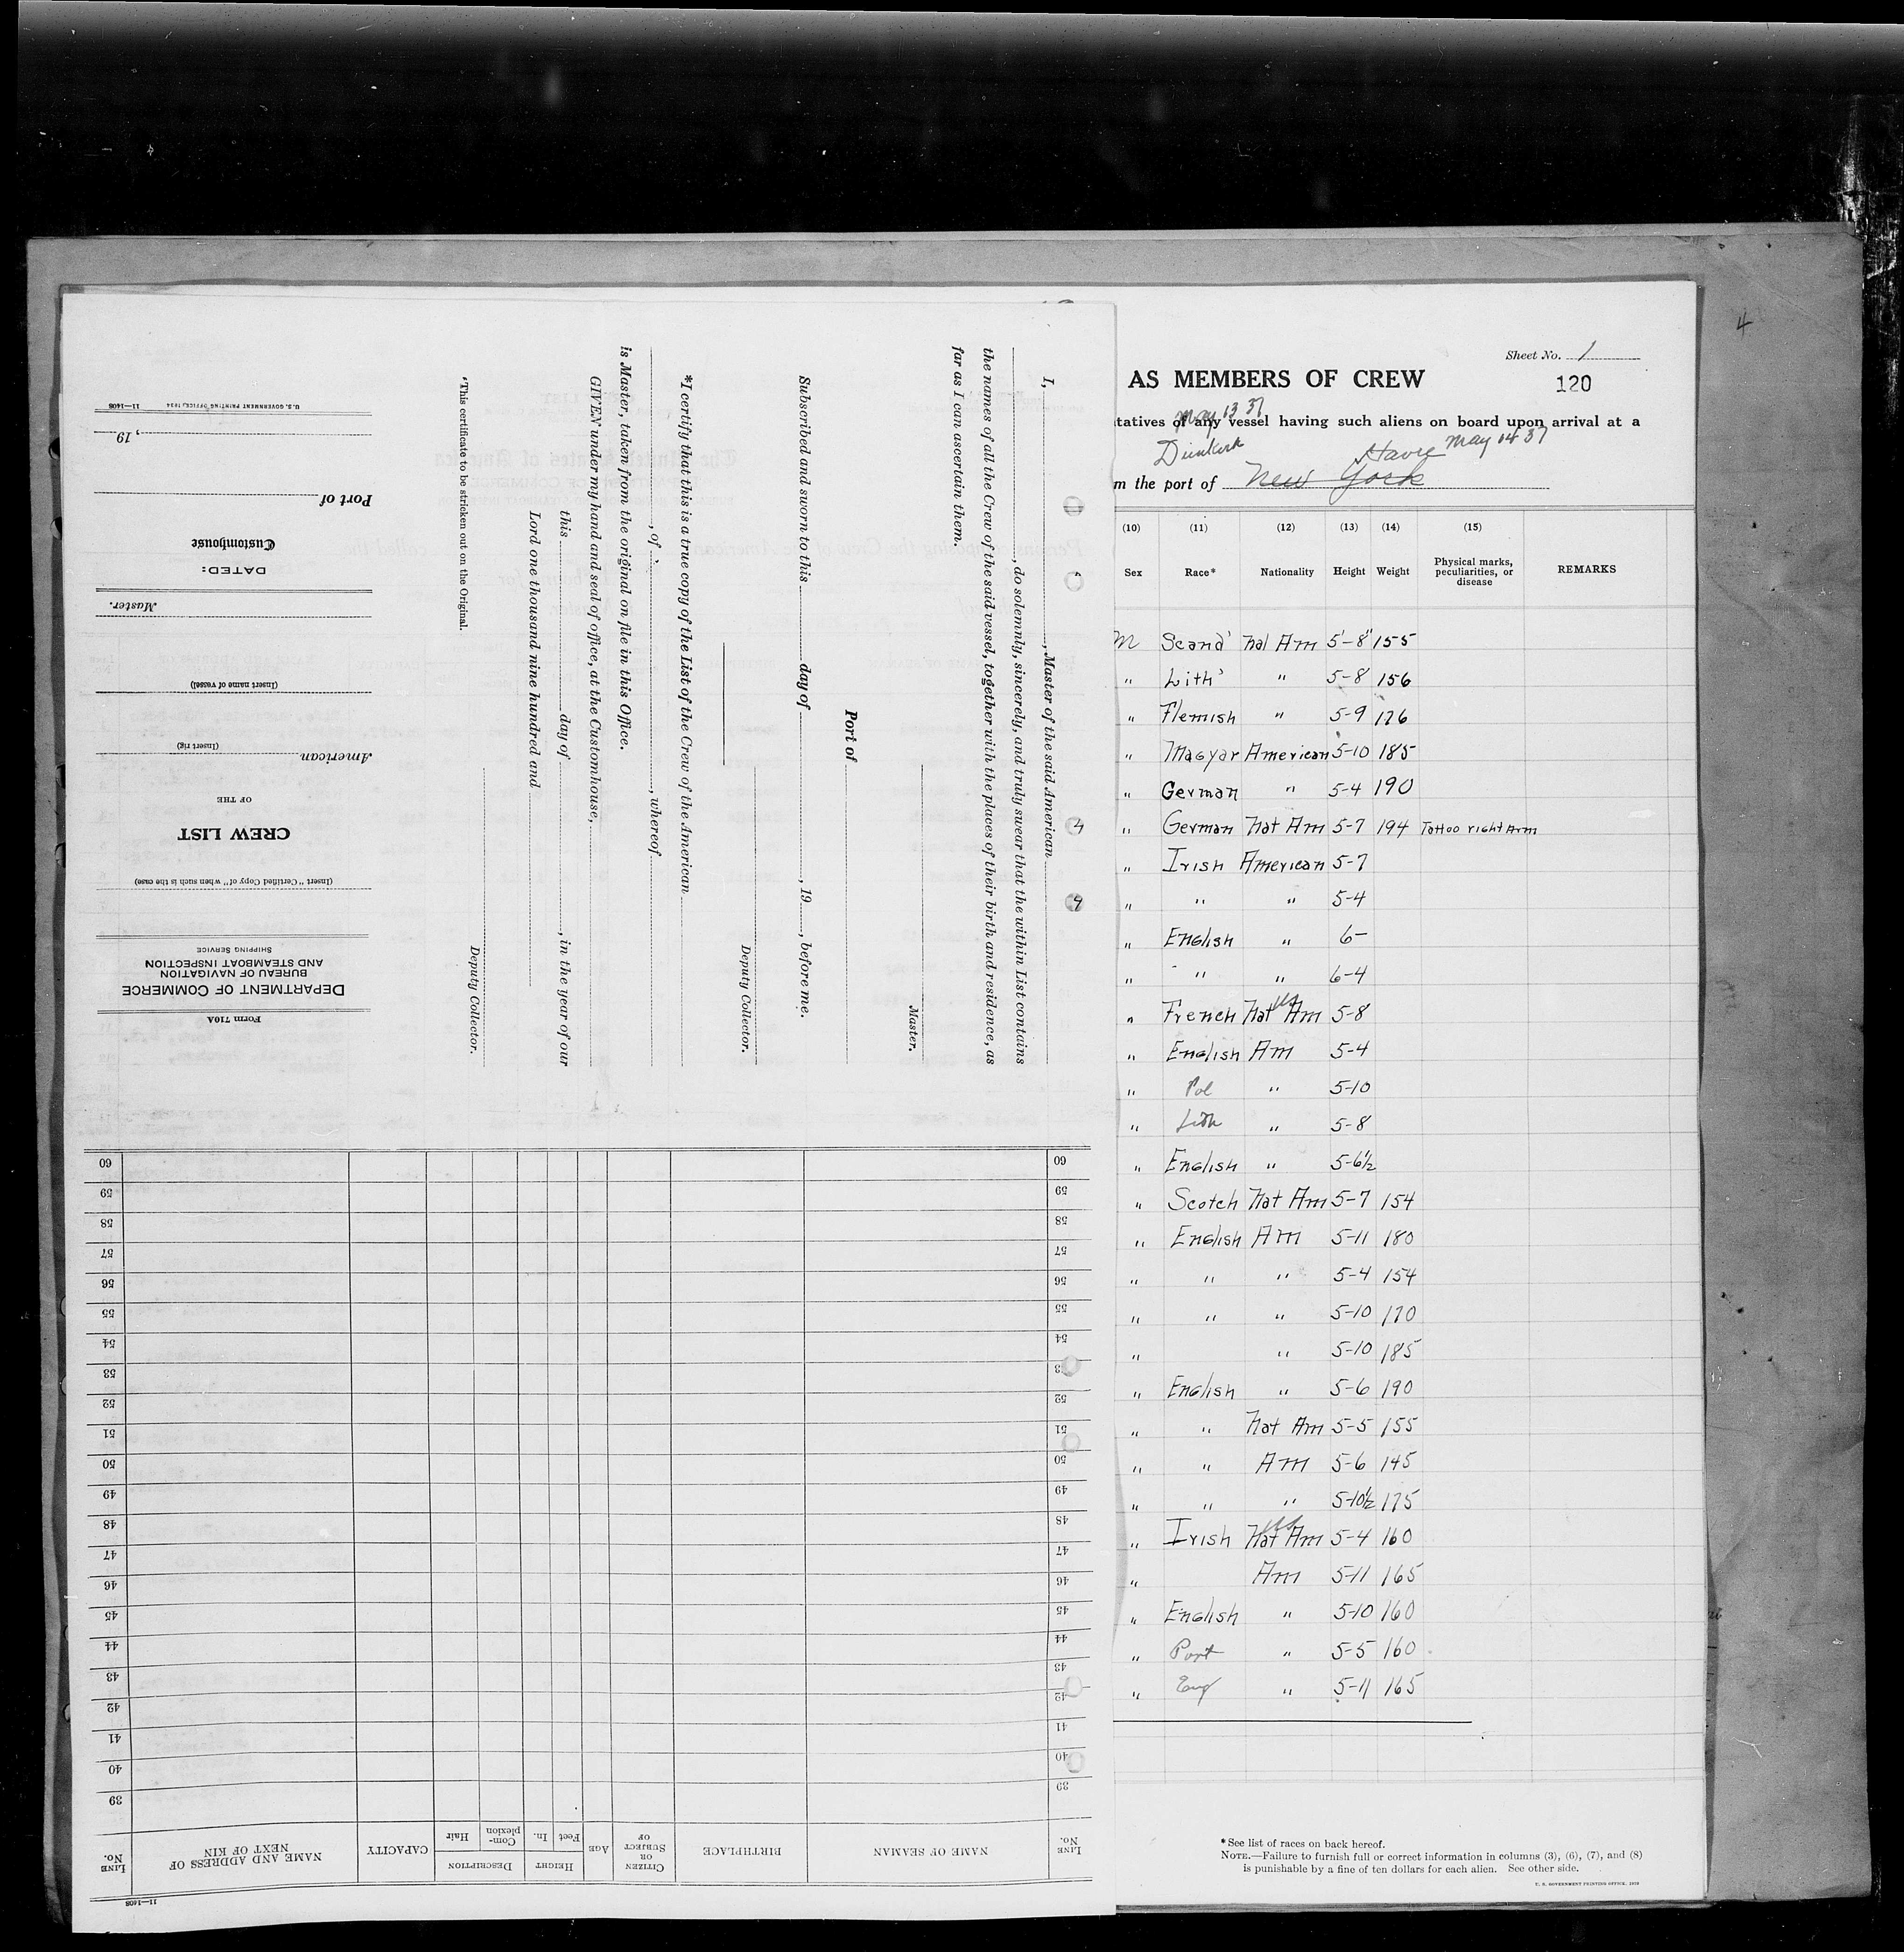 4
Sheet No. 1
AS MEMBERS OF CREW
120
May 13 37
tatives of any vessel having such aliens on board upon arrival at a
Dunkirk Havre May 14 37
m the port of New York
(10) (11) (12) (13) (14) (15)
Sex Race* Nationality Height Weight Physical marks, peculiarities, or disease REMARKS
M Scand' Nat Am 5'-8" 155
" Lith' " 5-8 156
" Flemish " 5-9 176
" Magyar American 5-10 185
" German " 5-4 190
" German Nat Am 5-7 194 Tattoo right Arm
" Irish American 5-7
" " " 5-4
" English " 6-
" " " 6-4
" French Nat Am 5-8
" English Am 5-4
" Pol " 5-10
" Lith " 5-8
" English " 5-6½
" Scotch Nat Am 5-7 154
" English Am 5-11 180
" " " 5-4 154
" " " 5-10 170
" " 5-10 185
" English " 5-6 190
" " Nat Am 5-5 155
" " Am 5-6 145
" " " 5-10½ 175
" Irish Nat Am 5-4 160
" Am 5-11 165
" English " 5-10 160
" Port " 5-5 160
" Eng " 5-11 165
*See list of races on back hereof.
NOTE.—Failure to furnish full or correct information in columns (3), (6), (7), and (8)
is punishable by a fine of ten dollars for each alien. See other side.
U. S. GOVERNMENT PRINTING OFFICE
I, , Master of the said American
, do solemnly, sincerely, and truly swear that the within List contains
the names of all the Crew of the said vessel, together with the places of their birth and residence, as
far as I can ascertain them.
Master.
Port of
Subscribed and sworn to this day of , 19 , before me.
Deputy Collector.
*I certify that this is a true copy of the List of the Crew of the American
, of , whereof
is Master, taken from the original on file in this Office.
GIVEN under my hand and seal of office, at the Customhouse,
this day of , in the year of our
Lord one thousand nine hundred and
Deputy Collector.
*This certificate to be stricken out on the Original.
Form 710A
DEPARTMENT OF COMMERCE
BUREAU OF NAVIGATION
AND STEAMBOAT INSPECTION
SHIPPING SERVICE
(Insert "Certified Copy of" when such is the case)
CREW LIST
OF THE
American
(Insert rig)
(Insert name of vessel)
Master.
DATED:
Customhouse
Port of
, 19
U. S. GOVERNMENT PRINTING OFFICE, 1934 11—1408
11—1408
LINE No. NAME OF SEAMAN BIRTHPLACE CITIZEN OR SUBJECT OF AGE HEIGHT Feet In. DESCRIPTION Complexion Hair CAPACITY NAME AND ADDRESS OF NEXT OF KIN LINE No.
39 39
40 40
41 41
42 42
43 43
44 44
45 45
46 46
47 47
48 48
49 49
50 50
51 51
52 52
53 53
54 54
55 55
56 56
57 57
58 58
59 59
60 60